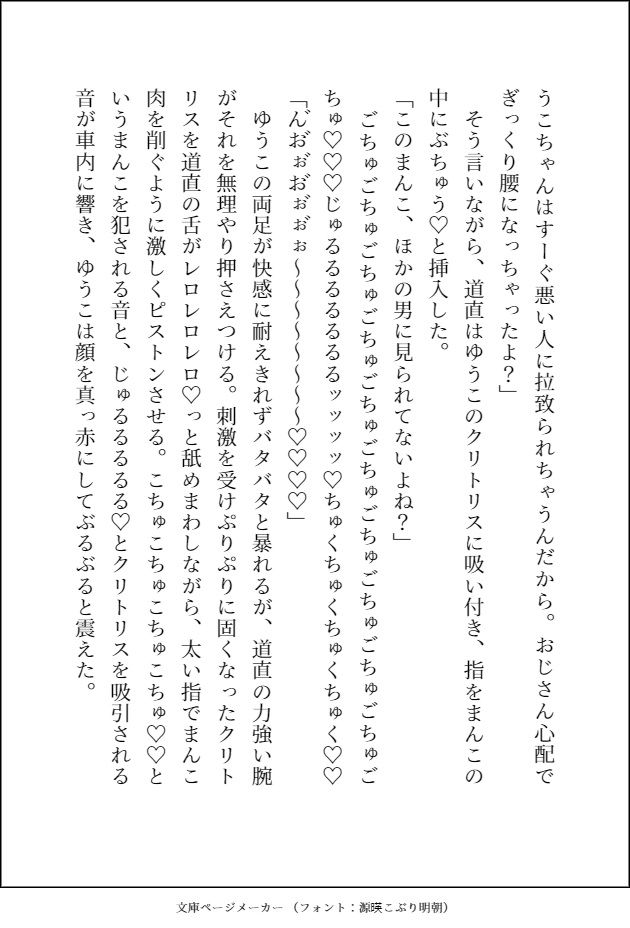 うこちゃんはすーぐ悪い人に拉致られちゃうんだから。おじさん心配で
ぎっくり腰になっちゃったよ?」
そう言いながら、道直はゆうこのクリトリスに吸い付き、指をまんこの
中にぶちゅう♡と挿入した。
「このまんこ、ほかの男に見られてないよね?」
ごちゅごちゅごちゅごちゅごちゅごちゅごちゅごちゅごちゅごちゅご
ちゅ♡♡♡じゅるるるるるるるッッッッ♡ちゅくちゅくちゅくちゅく♡♡
「ん゛お゛ぉ゛お゛ぉ゛ぉ゛ぉ〜〜〜〜〜〜〜〜♡♡♡♡」
ゆうこの両足が快感に耐えきれずバタバタと暴れるが、道直の力強い腕
がそれを無理やり押さえつける。刺激を受けぷりぷりに固くなったクリト
リスを道直の舌がレロレロレロ♡っと舐めまわしながら、太い指でまんこ
肉を削ぐように激しくピストンさせる。こちゅこちゅこちゅこちゅ♡♡と
いうまんこを犯される音と、じゅるるるるる♡とクリトリスを吸引される
音が車内に響き、ゆうこは顔を真っ赤にしてぶるぶると震えた。
文庫ページメーカー (フォント:源暎こぶり明朝)